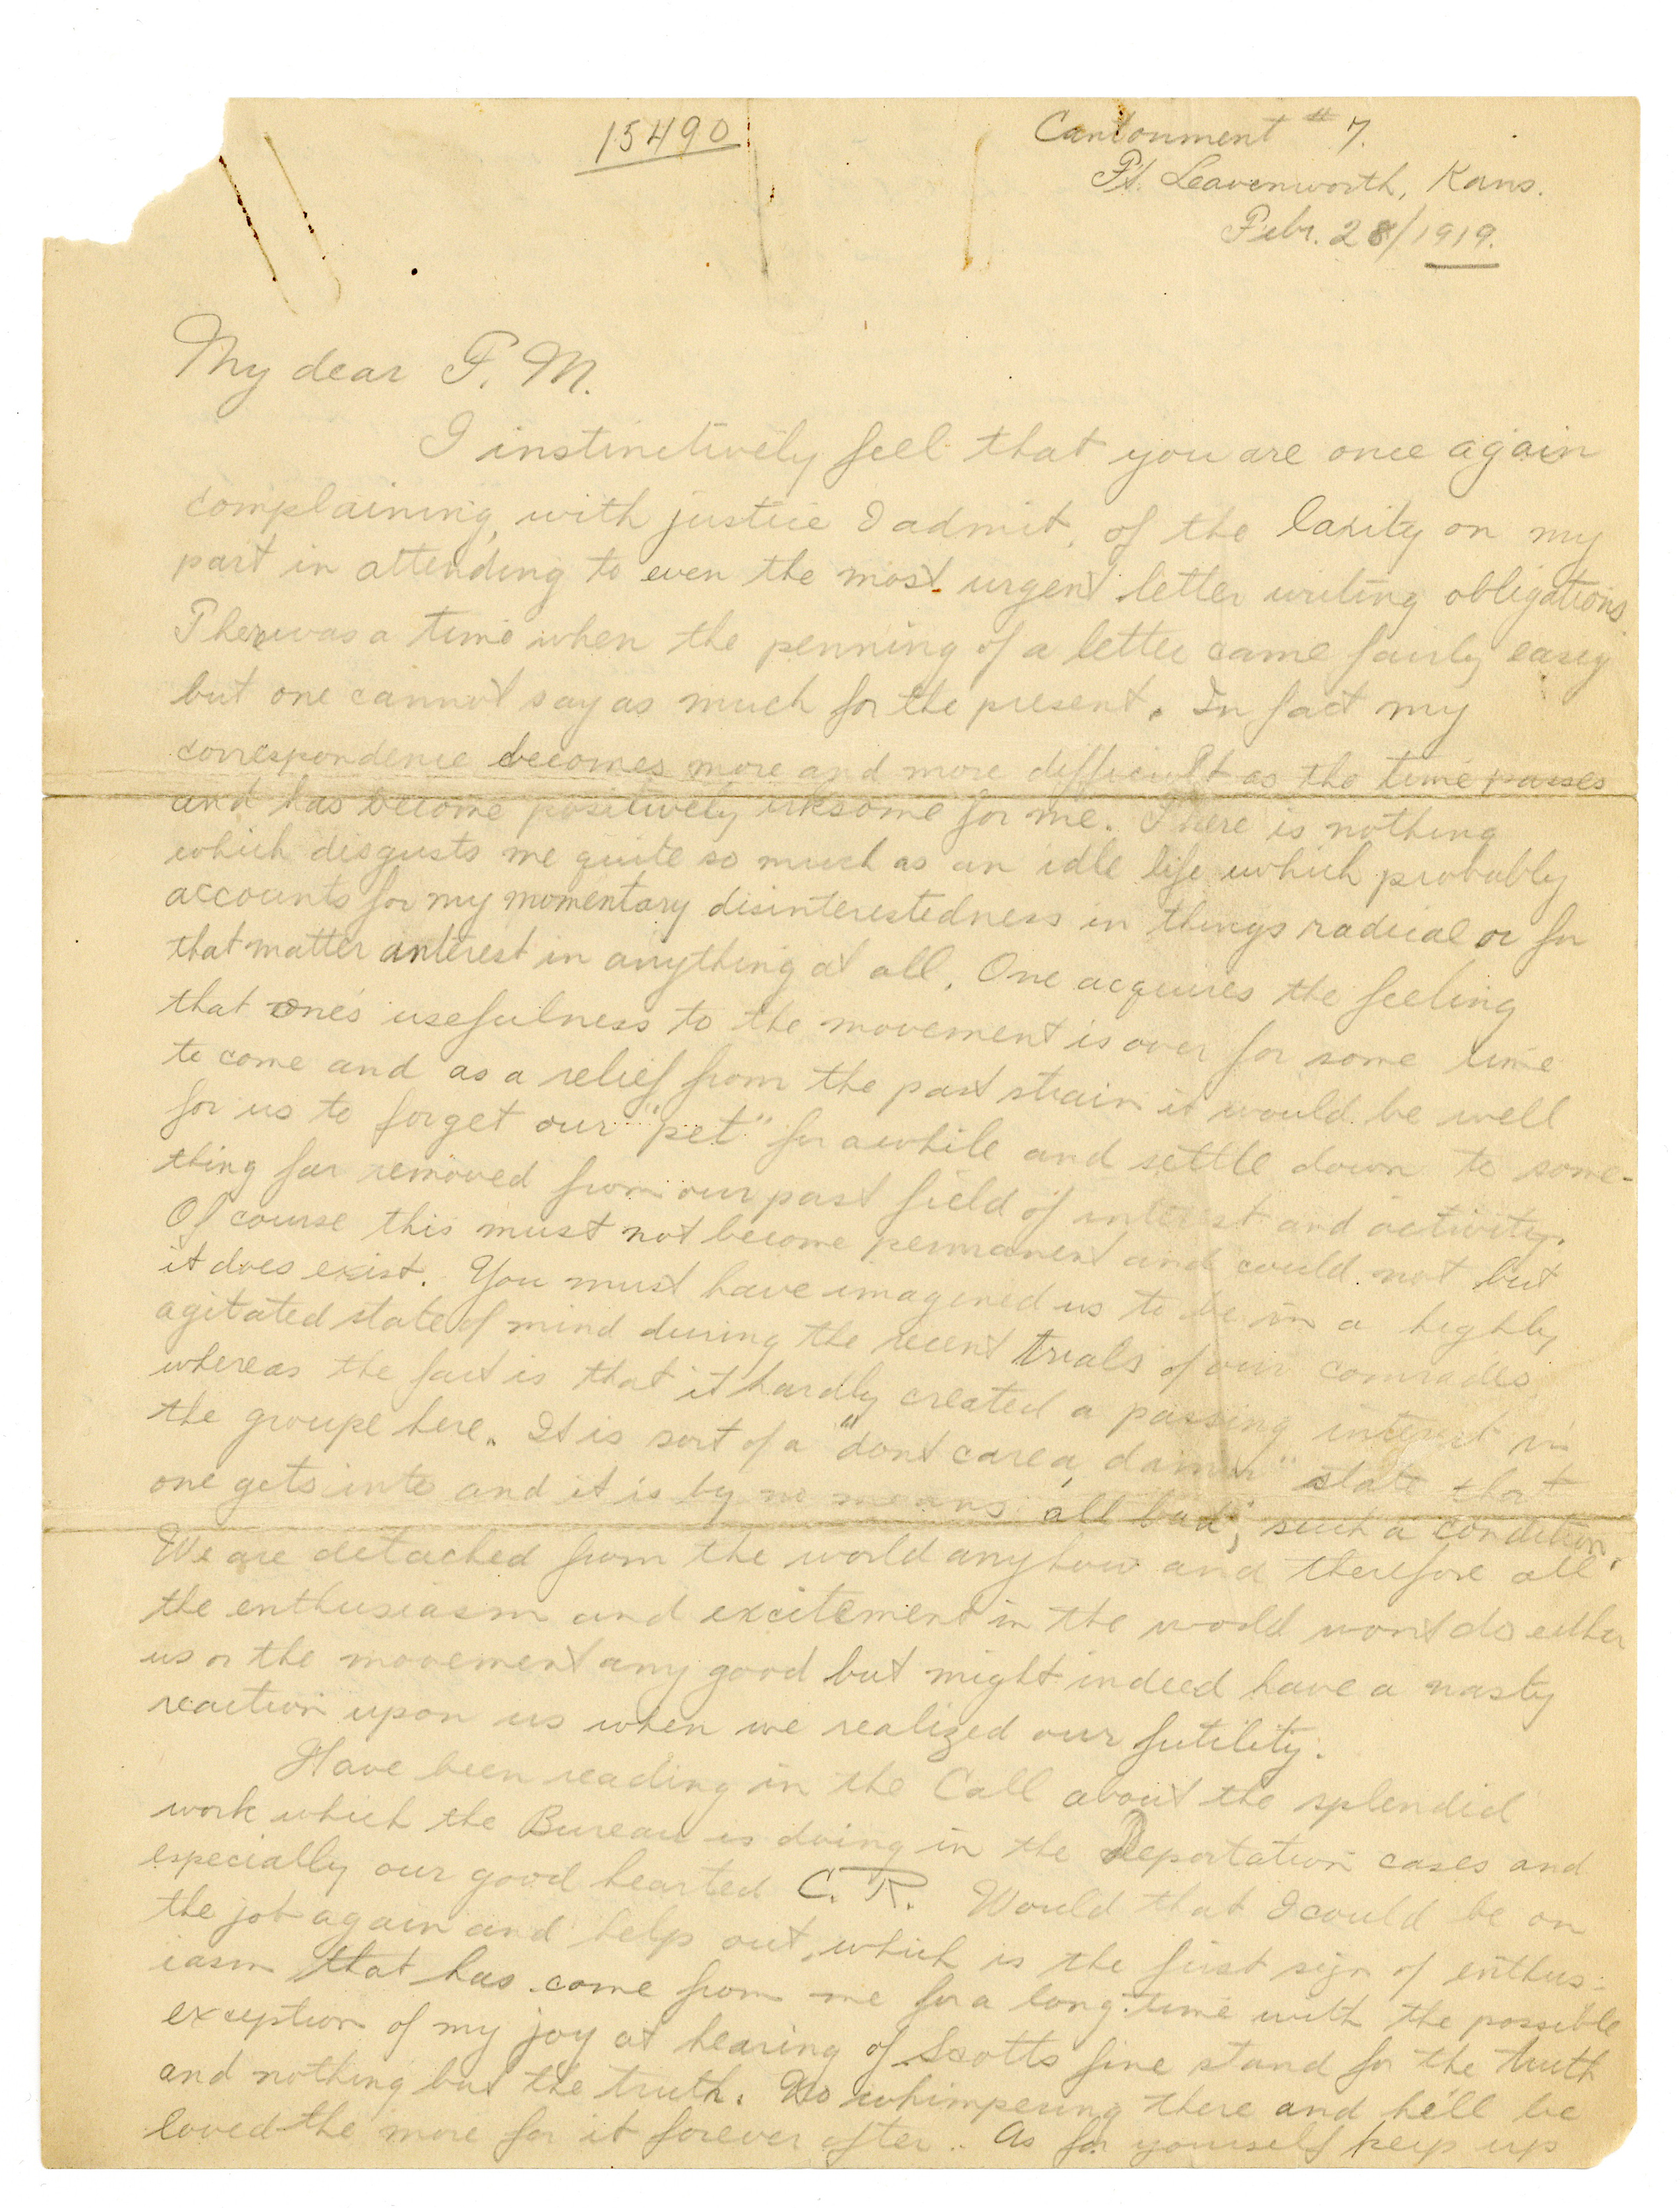 15490
Cantonment #7.
Ft. Leavenworth, Kans.
Febr. 28/1919.
My dear F. M.
I instinctively feel that you are once again
complaining, with justice I admit, of the laxity on my
part in attending to even the most urgent letter writing obligations
There was a time when the penning of a letter came fairly easy
but one cannot say as much for the present. In fact my
correspondence becomes more and more difficult as the time passes
and has become positively irksome for me. There is nothing
which disgusts me quite so much as an idle life which probably
accounts for my momentary disinterestedness in things radical or for
that matter interest in anything at all. One acquires the feeling
that one's usefulness to the movement is over for some time
to come and as a relief from the past strain it would be well
for us to forget our "pet" for awhile and settle down to some-
thing far removed from our past field of interest and activity.
Of course this must not become permanent and could not but
it does exist. You must have imagined us to be in a highly
agitated state of mind during the recent trials of our comrades,
whereas the fact is that it hardly created a passing interest in
the groupe here. It is sort of a "dont care a damn" state that
one gets into and it is by no means all bad, such a condition.
We are detached from the world anyhow and therefore all
the enthusiasm and excitement in the world wont do either
us or the movement any good but might indeed have a nasty
reaction upon us when we realized our futility.
Have been reading in the Call about the splendid
work which the Bureau is doing in the Deportation cases and
especially our good hearted C. R. Would that I could be on
the job again and help out, which is the first sign of enthus-
iasm that has come from me for a long time with the possible
exception of my joy at hearing of Scotts fine stand for the truth
and nothing but the truth. No whimpering there and he'll be
loved the more for it forever after. As for yourself keep up